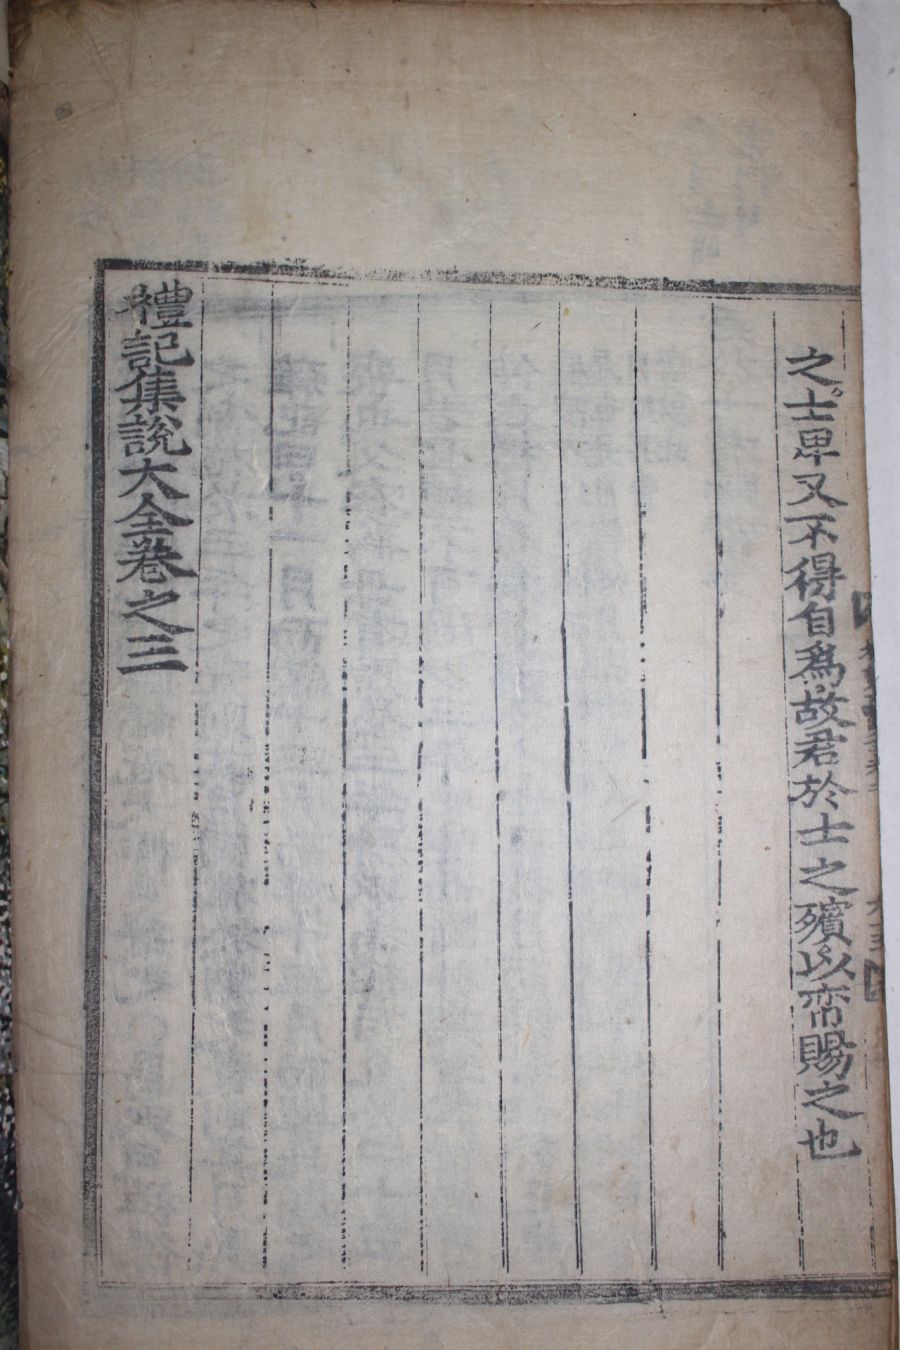 之士卑又不得自爲故君於士之殯以帟賜之也
禮記集說大全卷之三